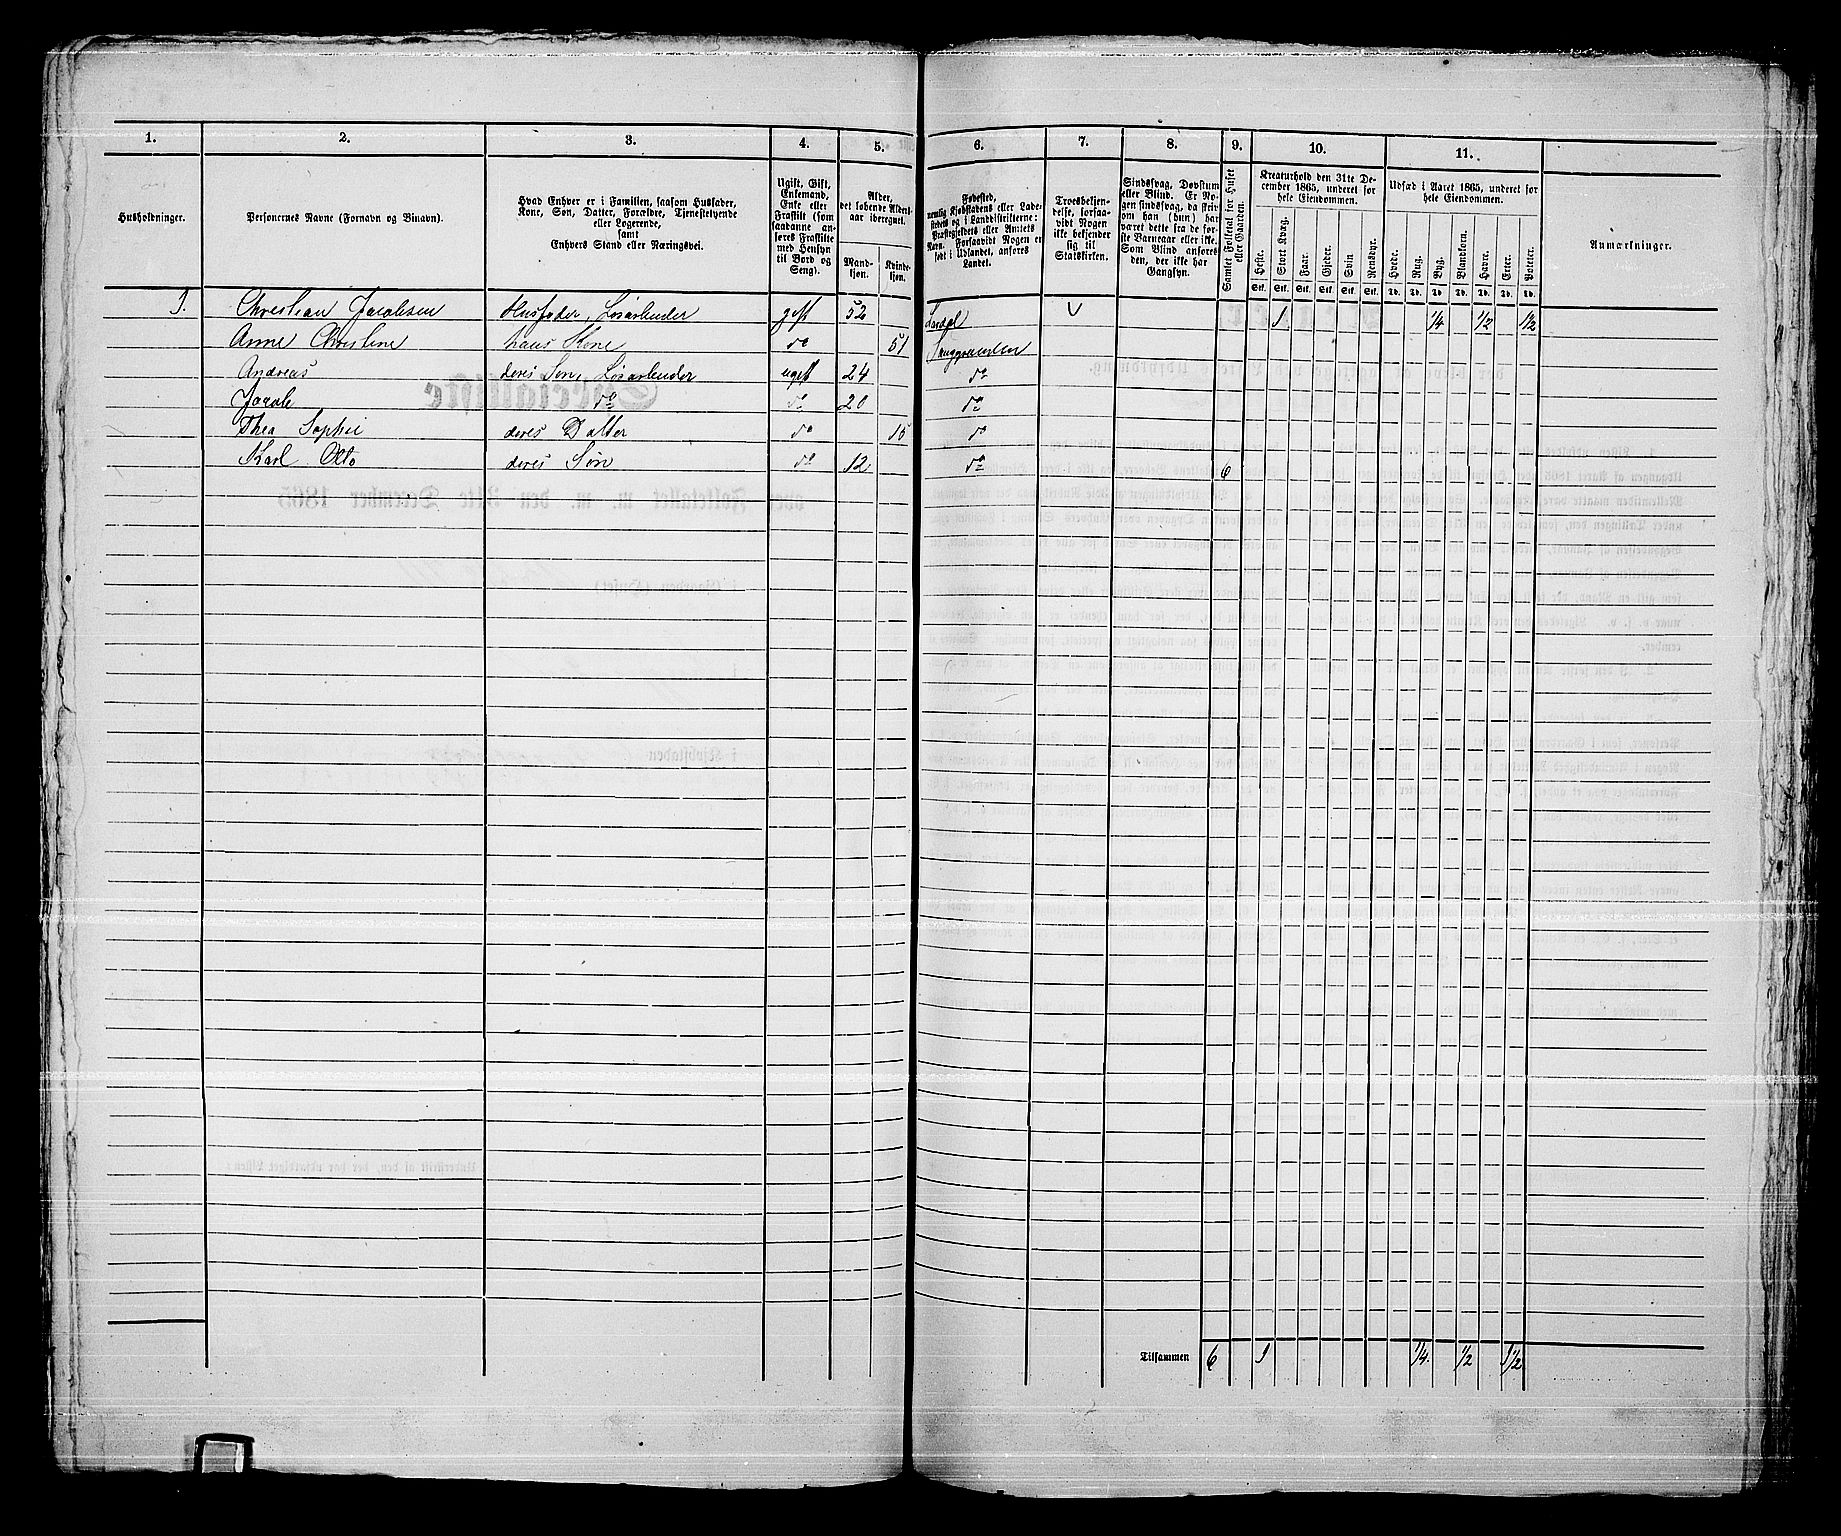 1. 2. 3. 4. 5. 6. 7. 8. 9. 10. 11.
Husholdninger.
Personernes Navne (Fornavn og Binavn).
Hvad Enhver er i Familien, saasom Husfader,
Kone, Søn, Datter, Forældre, Tjenestetyende
eller Logerende,
samt
Enhvers Stand eller Næringsvei.
Ugift, Gift,
Enkemand,
Enke eller
Fraskilt (som
saadanne an-
føres Fraskilte
med Hensyn
til Bord og
Seng).
Alder,
det løbende Alders-
aar iberegnet.
Mand-
kjøn.
Kvinde-
kjøn.
Fødested,
nemlig Kjøbstadens eller Lade-
stedets og i Landdistrikterne:
Præstegjeldets eller Amtets
Navn. Forsaavidt Nogen er
født i Udlandet, anføres
Landet.
Troesbekjen-
delse, forsaa-
vidt Nogen
ikke bekjender
sig til
Statskirken.
Sindssvag, Døvstum
eller Blind. Er No-
gen sindssvag, da skriv
om han (hun) har
været dette fra de før-
ste Barneaar eller ikke.
Som Blind anføres
den, der ikke har
Gangsyn.
Samlet Folketal for Huset
eller Gaarden.
Kreaturhold den 31te De-
cember 1865, underet for
hele Eiendommen.
Heste. Stort Kvæg. Faar. Gjeder. Svin Rensdyr.
Stk. Stk. Stk. Stk. Stk. Stk.
Udsæd i Aaret 1865, underet for
hele Eiendommen.
Hvede. Rug. Byg. Blandkorn. Havre. Erter. Poteter.
Td. Td. Td. Td. Td. Td. Td.
Anmærkninger.
1. Christian Jacobsen Husfader, Løsarbeider gift 52 1 1/4 1/2
Anne Christine hans Kone do 51
Andreas deres Søn, Løsarbeider ugift 24 do
Jacob do do 20 do
Thea Sophie deres Datter do 15 do
Karl Otto deres Søn do 12 do 6
Tilsammen 6 1 1/4. 1/2 1 1/2